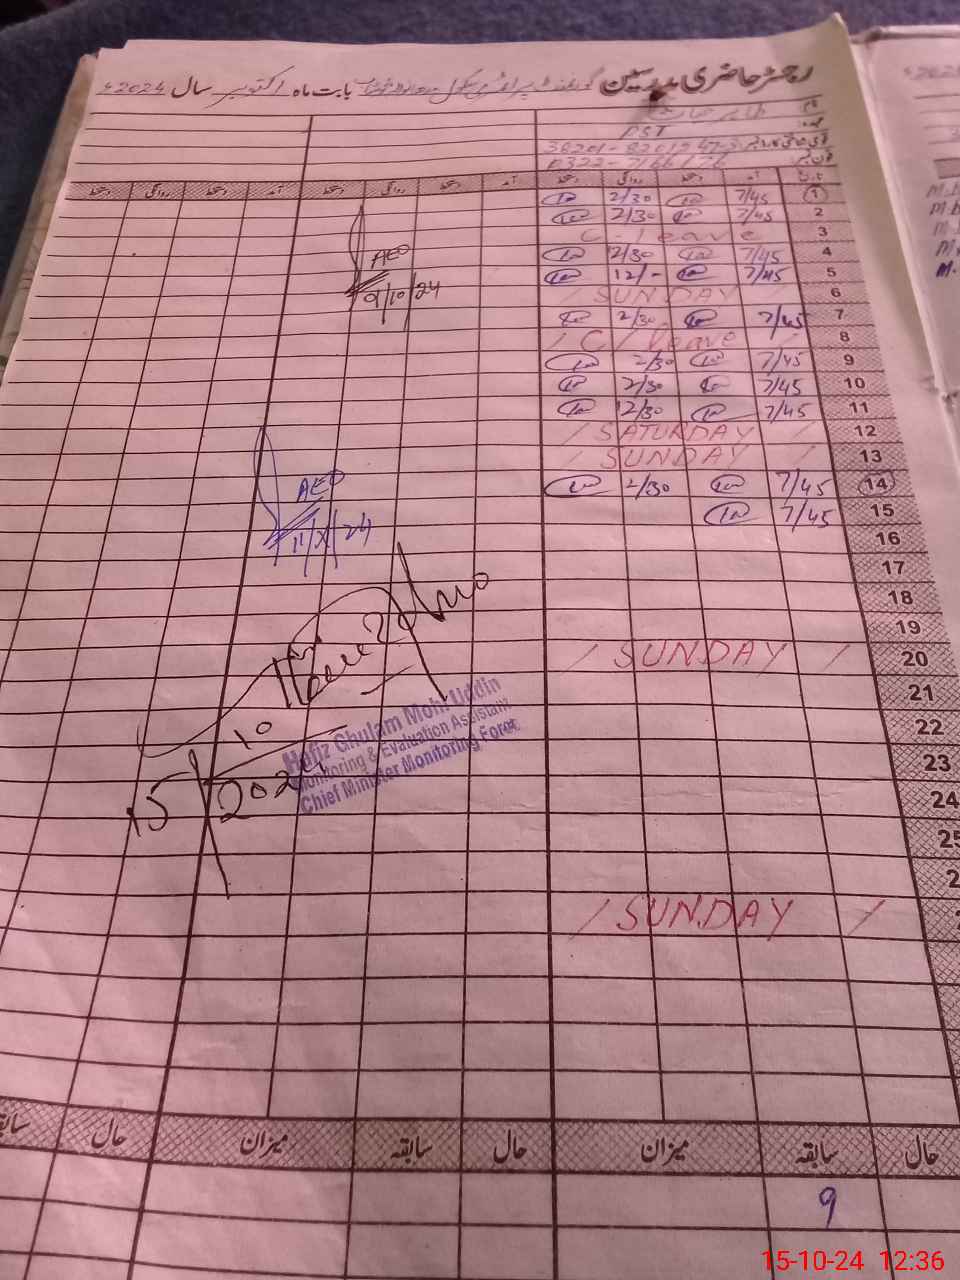 رجسٹر حاضری مدرسین گورنمنٹ پرائمری سکول بابت ماہ اکتوبر سال 2024ء
نام
عہدہ PST
فون نمبر
تاریخ آمد دستخط روانگی دستخط آمد دستخط روانگی دستخط آمد دستخط روانگی دستخط
1 7/45 2/30
2 7/45 2/30
3 C-leave
4 7/45 2/30
5 7/45 12/-
6 / SUNDAY /
7 7/45 2/30
8 / C/leave /
9 7/45 2/30
10 7/45 2/30
11 7/45 2/30
12 / SATURDAY /
13 / SUNDAY /
14 7/45 2/30
15 7/45
16
17
18
19
20 / SUNDAY /
21
22
23
24
25
/ SUNDAY /
AEO
9/10/24
AEO
11/X/24
15/10/2024
Hafiz Ghulam Mohi Uddin
Monitoring & Evaluation Assistant
Chief Minister Monitoring Force
حال سابقہ میزان حال سابقہ میزان حال سابقہ
9
15-10-24 12:36